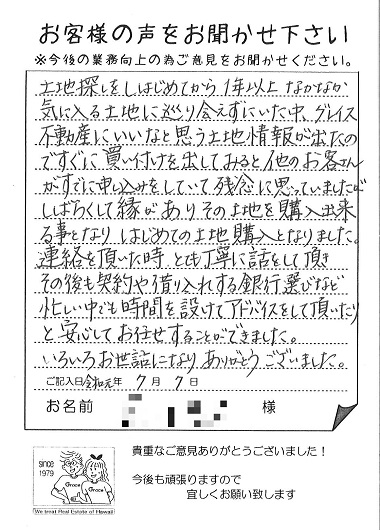 お客様の声をお聞かせ下さい
※今後の業務向上の為ご意見をお聞かせください。
土地探しをしはじめてから1年以上なかなか
気に入る土地に巡り会えずにいた中、グレイス
不動産にいいなと思う土地情報が出たの
ですぐに買い付けを出してみると他のお客さん
がすでに申し込みをしていて残念に思っていましたが
しばらくして縁がありその土地を購入出来
る事となりはじめての土地購入となりました。
連絡を頂いた時とても丁寧に話をして頂き
その後も契約や借り入れする銀行選びなど
忙しい中でも時間を設けてアドバイスをして頂いたり
と安心してお任せすることができました。
いろいろお世話になりありがとうございました。
ご記入日 令和元年 7月 7日
お名前 様
since
1979
Grace
Grace
We treat Real Estate of Hawaii
貴重なご意見ありがとうございました！
今後も頑張りますので
宜しくお願い致します